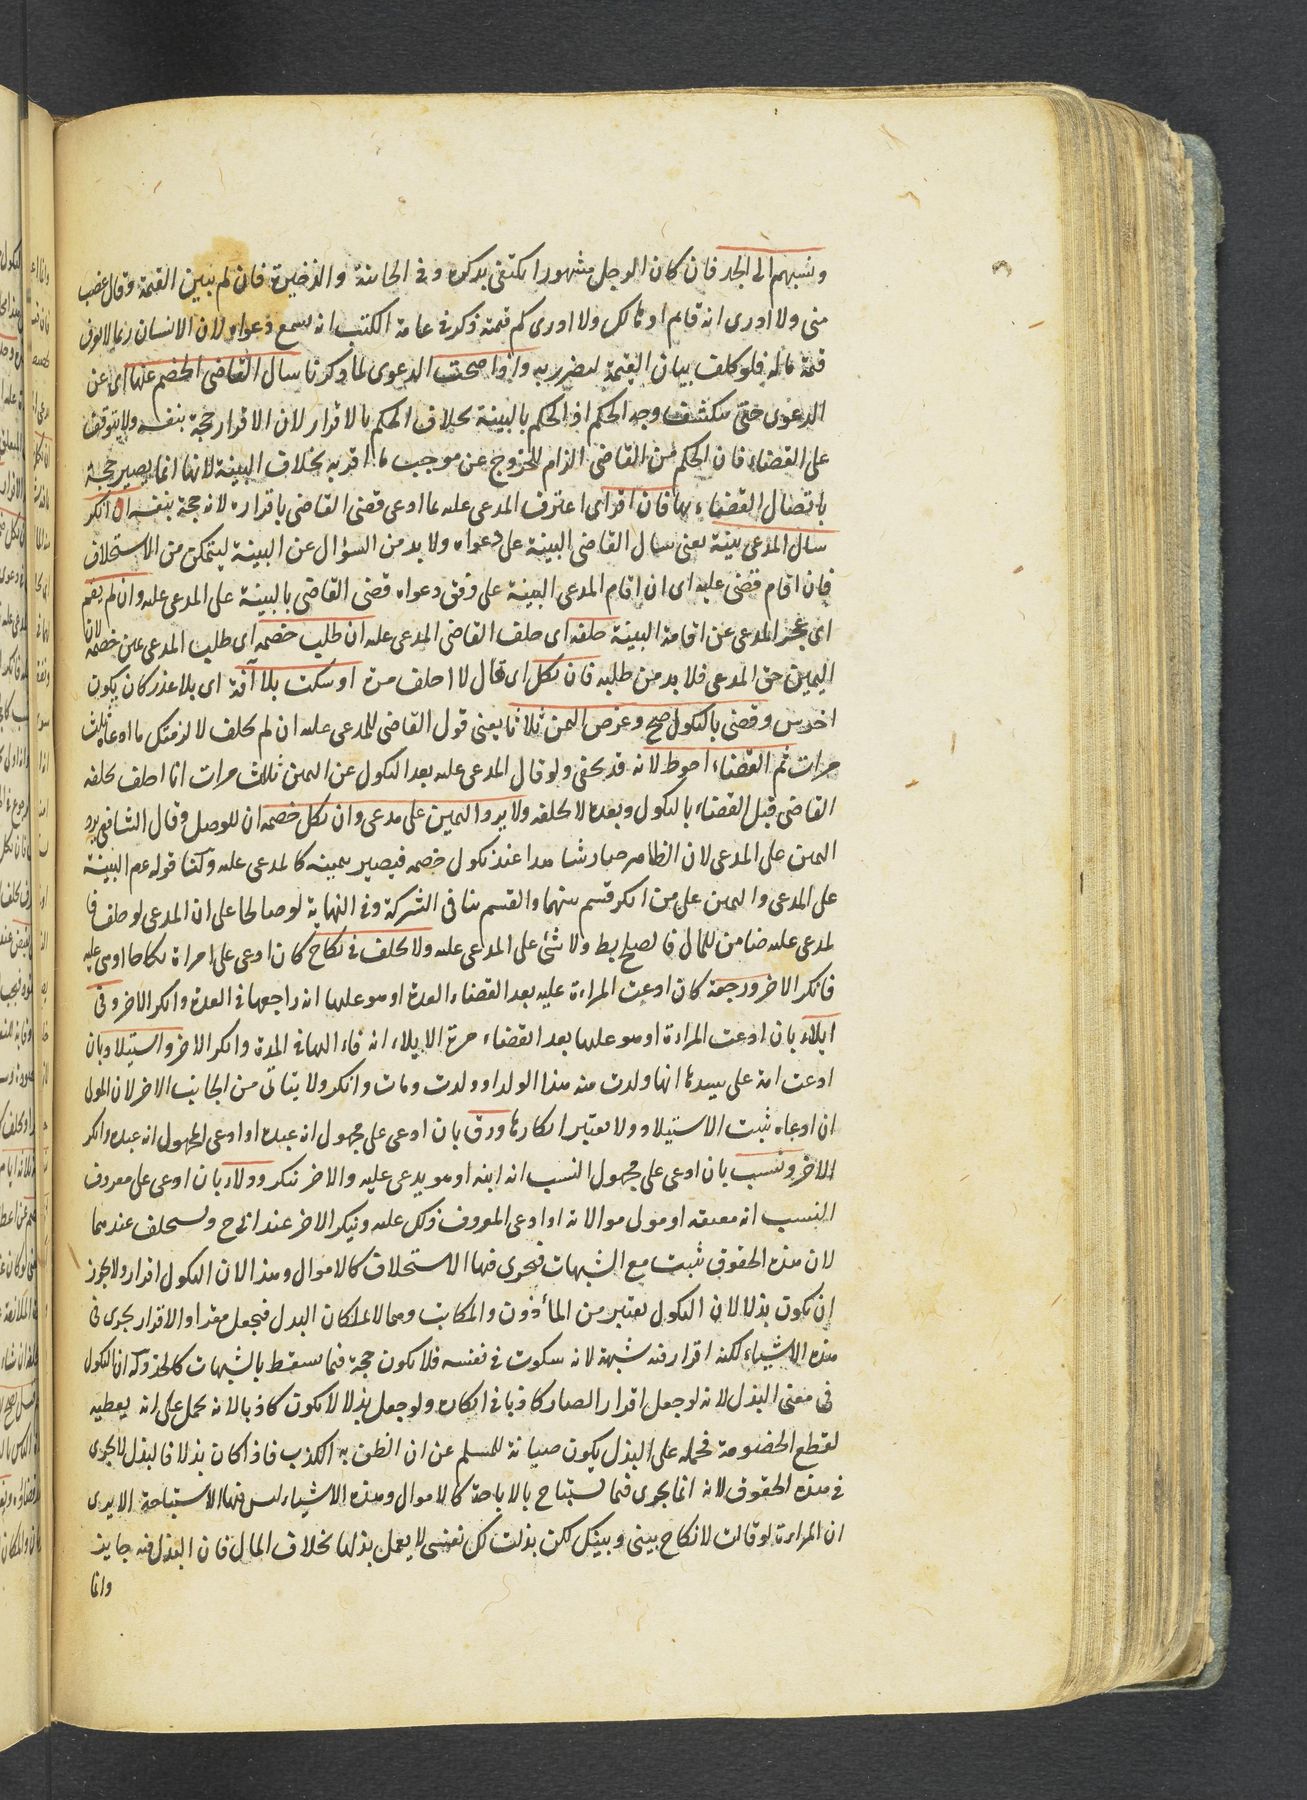 ونسبهم الى الجد فان كان الرجل مشهورا يكتفى بذكره وفى الخانية والذخيرة فان لم يبين القيمة وقال غصب
منى ولا ادرى انه قايم او هالك ولا ادرى كم قيمته ذكر فى عامة الكتب انه يسمع دعواه لان الانسان ربما لا يعرف
قيمة ماله فلو كلف بيان القيمة لتضرر به واذا صحت الدعوى لما ذكرنا سال القاضى الخصم عنها اى عن
الدعوى حتى ينكشف وجه الحكم اذ الحكم بالبينة بخلاف الحكم بالاقرار لان الاقرار حجة بنفسه ولا يتوقف
على القضاء فان الحكم من القاضى الزام للخروج عن موجب ما اقر به بخلاف البينة لانها انما يصير حجة
باتصال القضاء بها فان اقر اى اعترف المدعى عليه بما ادعى قضى القاضى باقراره لانه حجة بنفسه او انكر
سال المدعى بينة يعنى سال القاضى البينة على دعواه ولا بد من السؤال عن البينة ليتمكن من الاستحلاف
فان اقام قضى عليه اى ان اقام المدعى البينة على وفق دعواه قضى القاضى بالبينة على المدعى عليه وان لم يقم
اى عجز المدعى عن اقامة البينة حلفه اى حلف القاضى المدعى عليه ان طلب خصمه اى طلب المدعى يمين خصمه لان
اليمين حق المدعى فلا بد من طلبه فان نكل اى قال لا احلف مرة او سكت بلا آفة اى بلا عذر كان يكون
اخرس وقضى بالنكول صح وعرض اليمين ثلاثا يعنى قول القاضى للمدعى عليه ان لم تحلف لالزمتك ما ادعاه ثلث
مرات ثم القضاء احوط لانه قد يخفى ولو قال المدعى عليه بعد النكول عن اليمين ثلاث مرات انا احلف يحلفه
القاضى قبل القضاء بالنكول وبعده لا يحلفه ولا يرد اليمين على مدعى وان نكل خصمه ان للوصل وقال الشافعى يرد
اليمين على المدعى لان الظاهر صار شاهدا عند نكول خصمه فيصير يمينه كالمدعى عليه ولنا قوله عم البينة
على المدعى واليمين على من انكر قسم بينهما والقسم ينافى الشركة وفى النهاية لو صالحا على ان المدعى لو حلف فا
لمدعى عليه ضامن للمال فالصلح بط ولا شئ على المدعى عليه ولا يحلف فى نكاح كان ادعى على امراة نكاحا او هى عليه
فانكر الاخر ورجعة كان ادعت المراءة عليه بعد القضاء العدة او هو عليها انه راجعها فى العدة وانكر الاخر وفى
ايلاء بان ادعت المراءة او هو عليها بعد انقضاء مدة الايلاء انه فاء اليها فى المدة وانكر الاخر واستيلاد بان
ادعت امة على سيدها انها ولدت منه هذا الولد او ولدت ومات وانكر ولا يتاتى من الجانب الاخر لان المولى
ان ادعاه ثبت الاستيلاد ولا يعتبر انكارها ورق بان ادعى على مجهول انه عبده او ادعى المجهول انه عبده وانكر
الاخر ونسب بان ادعى على مجهول النسب انه ابنه او هو يدعى عليه والاخر ينكر وولاء بان ادعى على معروف
النسب انه معتقه او مولى موالاته او ادعى المعروف ذلك عليه وينكر الاخر عند ابى ح ويستحلف عندهما
لان هذه الحقوق تثبت مع الشبهات فيجرى فيها الاستحلاف كالاموال وهذا لان النكول اقرار ولا يجوز
ان يكون بذلا لان النكول يعتبر من المأذون والمكاتب وهما لا يملكان البدل فيجعل مقرا والاقرار يجرى فى
هذه الاشياء لكنه اقرار فيه شبهة لانه سكوت فى نفسه فلا يكون حجة فيما يسقط بالشبهات كالحد وله ان النكول
فى معنى البذل لانه لو جعل اقرارا لصار كاذبا فى انكاره ولو جعل بذلا لا يكون كاذبا لانه يحمل على انه يعطيه
لقطع الخصومة فحمله على البذل يكون صيانة للمسلم عن ان الظن به الكذب فاذا كان بذلا فالبذل لا يجرى
فى هذه الحقوق لانه انما يجرى فيما يستباح بالاباحة كالاموال وهذه الاشياء ليس فيها الاستباحة الا يرى
ان المراءة لو قالت لا نكاح بينى وبينك لكن بذلت لك نفسى لا يعمل بذلها بخلاف المال فان البذل فيه جايز
وانما